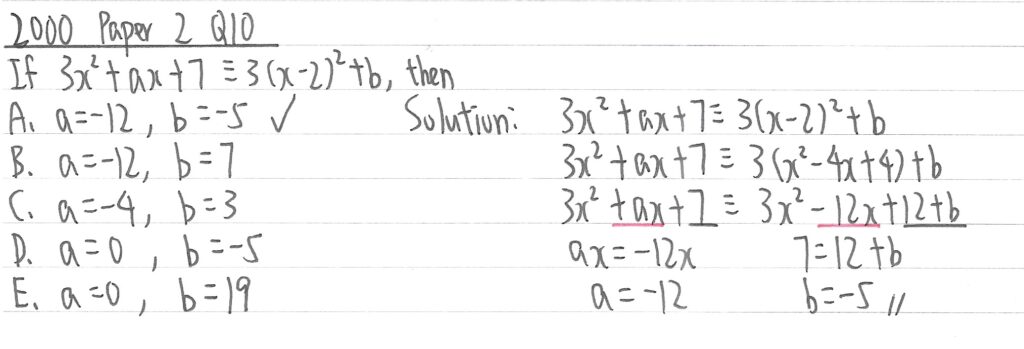 2000 Paper 2 Q10
If 3x²+ax+7 ≡ 3(x-2)²+b, then
A. a=-12, b=-5 ✓
B. a=-12, b=7
C. a=-4, b=3
D. a=0, b=-5
E. a=0, b=19
Solution: 3x²+ax+7 ≡ 3(x-2)²+b
3x²+ax+7 ≡ 3(x²-4x+4)+b
3x²+ax+7 ≡ 3x²-12x+12+b
ax=-12x 7=12+b
a=-12 b=-5 //